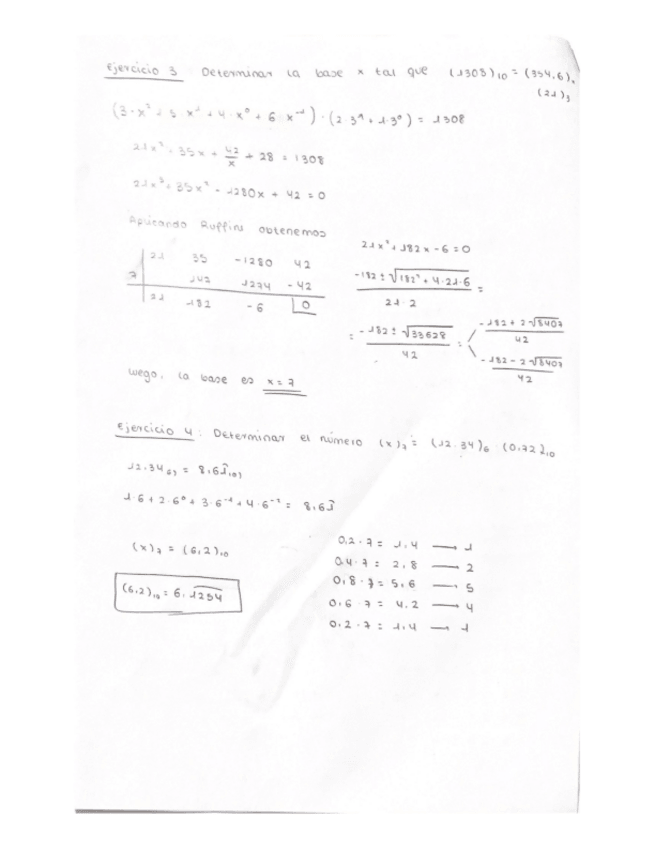 Ejercicio 3 Determinar la base x tal que (1308)₁₀ = (354.6)ₓ · (21)₃
(3·x² + 5·x¹ + 4·x⁰ + 6·x⁻¹) · (2·3¹ + 1·3⁰) = 1308
21x² + 35x + 42/x + 28 = 1308
21x³ + 35x² - 1280x + 42 = 0
Aplicando Ruffini obtenemos
21 35 -1280 42
7 147 1274 -42
21 182 -6 0
21x² + 182x - 6 = 0
(-182 ± √(182² + 4·21·6)) / (21·2) =
= (-182 ± √33628) / 42 =
(-182 + 2√8407) / 42
(-182 - 2√8407) / 42
Luego, la base es x = 7
Ejercicio 4: Determinar el número (x)₇ = (12.34)₆ · (0,72)₁₀
12.34₆₎ = 8,61̂₁₀₎
1·6 + 2·6⁰ + 3·6⁻¹ + 4·6⁻² = 8,61̂
(x)₇ = (6,2)₁₀
(6,2)₁₀ = 6,1254
0,2·7 = 1,4 → 1
0,4·7 = 2,8 → 2
0,8·7 = 5,6 → 5
0,6·7 = 4,2 → 4
0,2·7 = 1,4 → 1